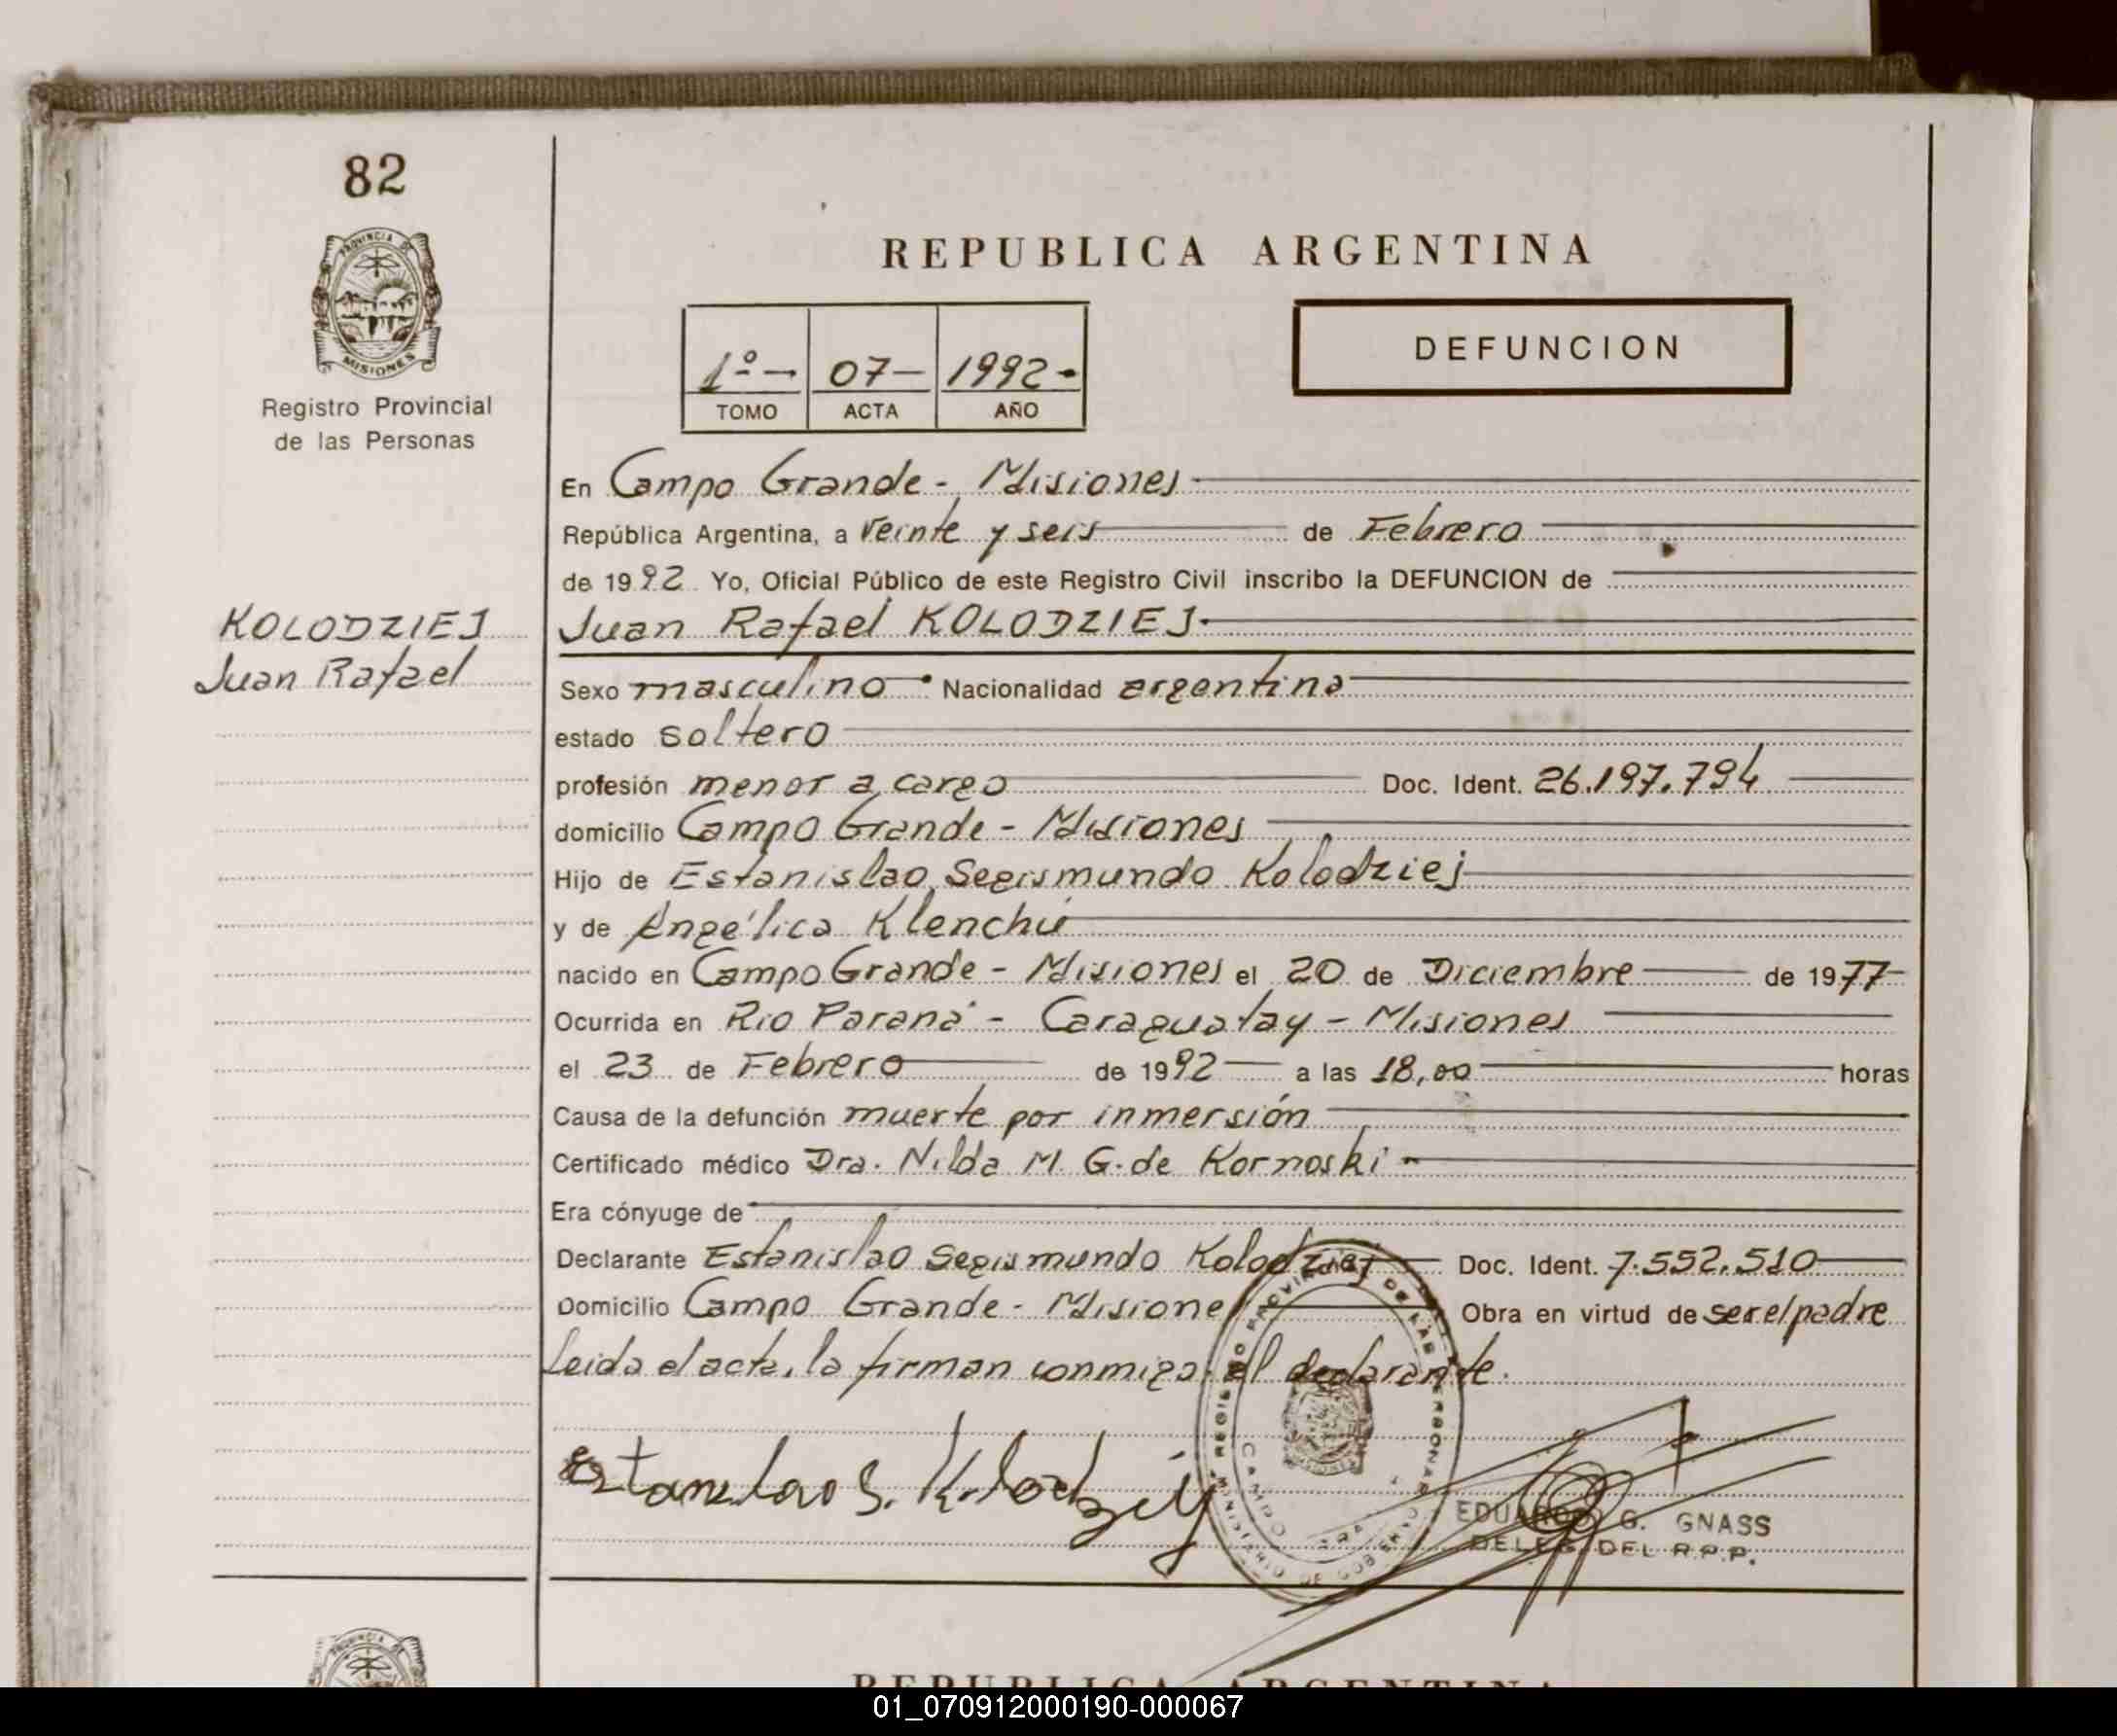 82
PROVINCIA DE
MISIONES
Registro Provincial
de las Personas
REPUBLICA ARGENTINA
1º - 07 - 1992 -
TOMO ACTA AÑO
DEFUNCION
En Campo Grande - Misiones
República Argentina, a veinte y seis de Febrero
de 1992 Yo, Oficial Público de este Registro Civil inscribo la DEFUNCION de
KOLODZIEJ
Juan Rafael
Juan Rafael KOLODZIEJ
Sexo masculino Nacionalidad argentina
estado soltero
profesión menor a cargo Doc. Ident. 26.197.794
domicilio Campo Grande - Misiones
Hijo de Estanislao Segismundo Kolodziej
y de Angélica Klenchu
nacido en Campo Grande - Misiones el 20 de Diciembre de 1977
Ocurrida en Rio Paraná - Caraguatay - Misiones
el 23 de Febrero de 1992 a las 18,00 horas
Causa de la defunción muerte por inmersión
Certificado médico Dra. Nilda M. G. de Kornoski
Era cónyuge de
Declarante Estanislao Segismundo Kolodziej Doc. Ident. 7.552.510
Domicilio Campo Grande - Misiones Obra en virtud de ser el padre
Leida el acta, la firman conmigo: el declarante.
Estanislao S. Kolodziej
REGISTRO PROVINCIAL DE LAS PERSONAS
MINISTERIO DE GOBIERNO
CAMPO GRANDE
EDUARDO G. GNASS
DELEG. DEL R.P.P.
PROVINCIA DE
REPUBLICA ARGENTINA
01_070912000190-000067